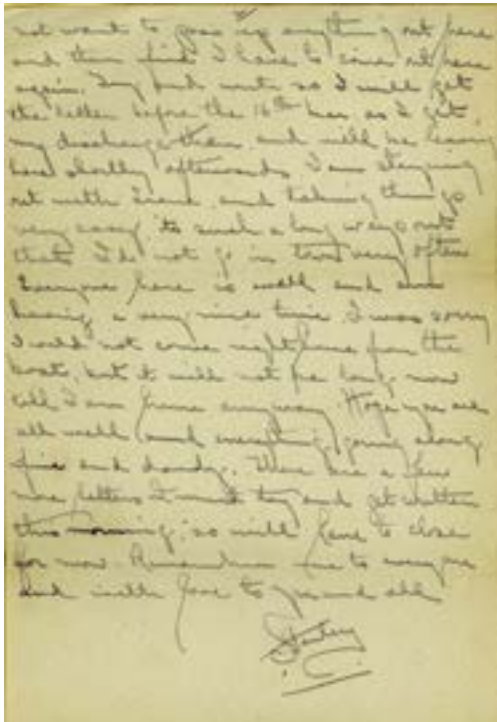 not want to pass up anything out here
and then find I have to come out here
again. Try and write so I will get
the letter before the 16th as I get
my discharge then and will be leaving
here shortly afterwards. I am staying
out with and taking things
very easy its such a long ways out
that I do not go in town very often
Everyone here is well and am
having a very nice time. I was sorry
I could not come right home from the
boat, but it will not be long now
till I am home anyway. Hope you are
all well and everything going along
fine and dandy. There are a few
more letters I must try and get written
this morning, so will have to close
for now. Remember me to everyone
and with love to you and all